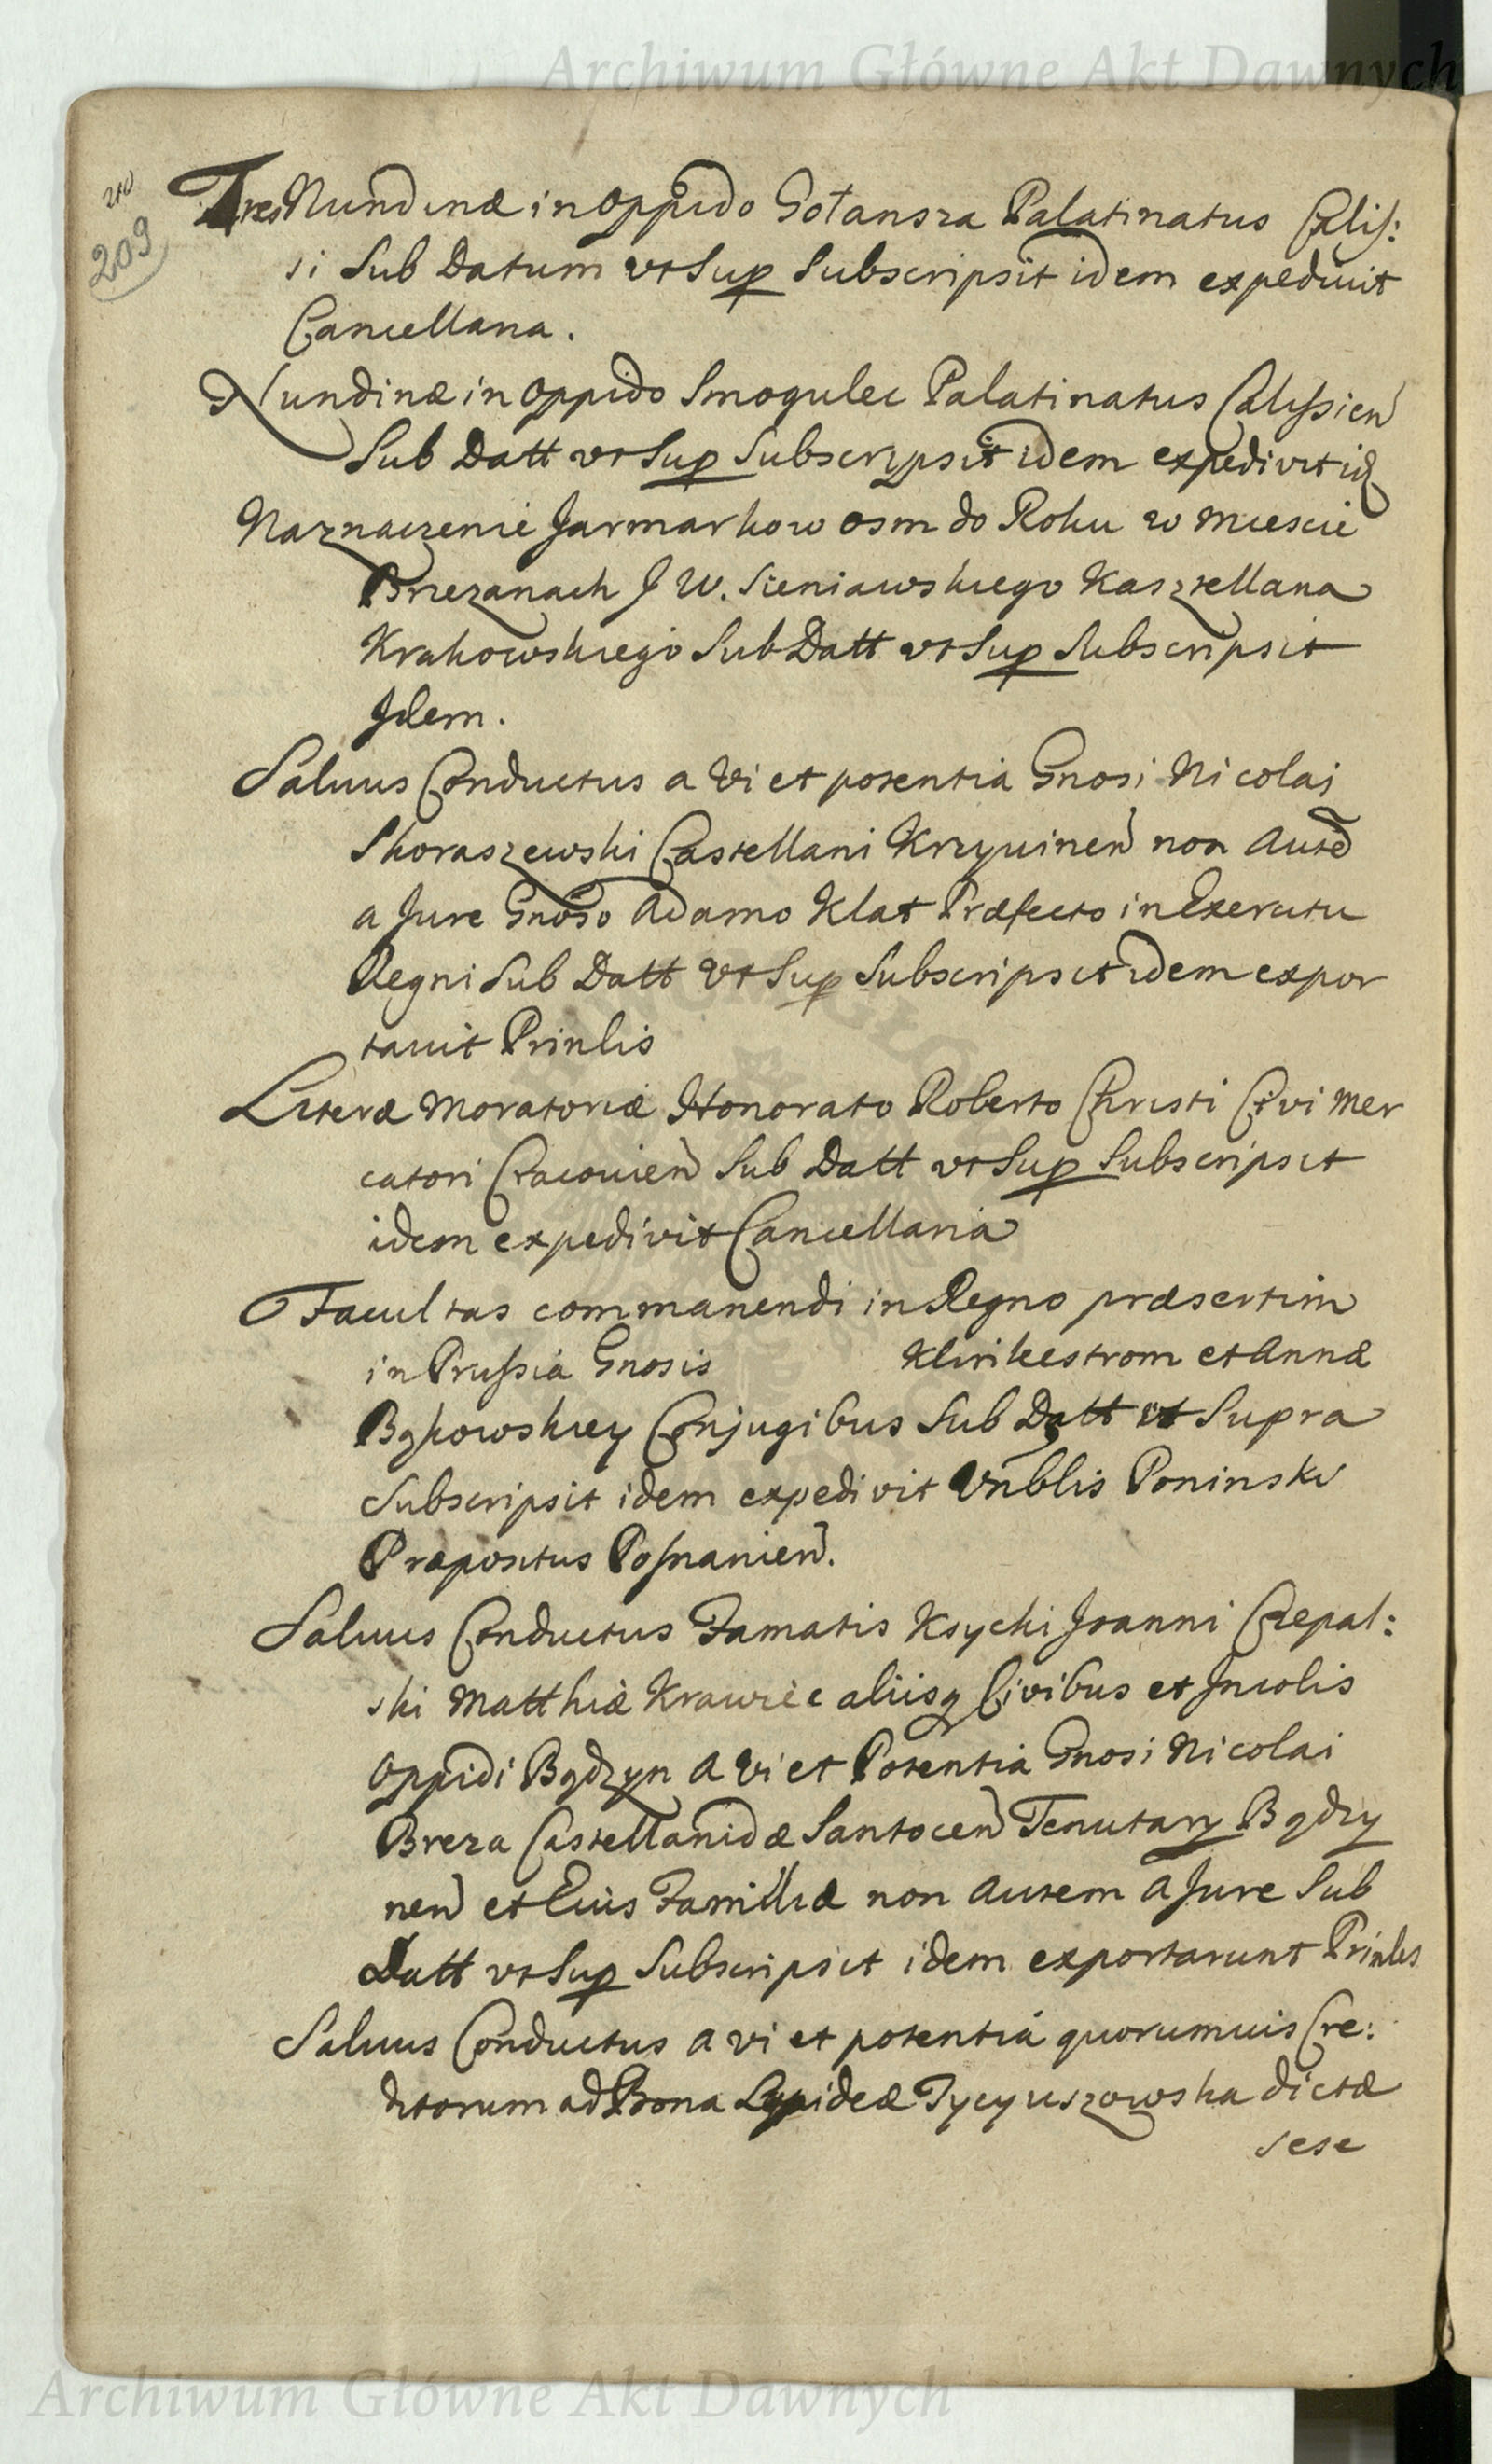 Archiwum Główne Akt Dawnych
210
209
Tres Nundinæ in Oppido Gołansza Palatinatus Calis:
si Sub Datum vt Sup Subscripsit idem expedivit
Cancellaria.
Nundinæ in Oppido Smogulec Palatinatus Calissien
Sub Datt vt Sup Subscripsit idem expedivit idq
Naznaczenie Jarmarkow osm do Roku w miescie
Brzezanach J W. Sieniawskiego Kasztellana
Krakowskiego Sub Datt vt Sup Subscripsit
Jdem.
Saluus Conductus a Vi et potentia Gnosi Nicolai
Skoraszewski Castellani Krzywinen non Aute
a Jure Gnoso Adamo Klat Præfecto in Exercitu
Regni Sub Datt Vt Sup Subscripsit idem expor
tauit Prinlis
Literæ Moratoriæ Honorato Roberto Christi Civi Mer
catori Cracouien Sub Datt vt Sup Subscripsit
idem expedivit Cancellaria
Facultas commanendi in Regno præsertim
in Prussia Gnosis Klinkiestrom et Annæ
Bąkowskiey Conjugibus Sub Datt vt Supra
Subscripsit idem expedivit Vnblis Poninski
Præpositus Posnanien.
Saluus Conductus Famatis Ksycki Joanni Czepal:
ski Matthiæ Krawiec aliisq Civibus et Jncolis
Oppidi Bądzyn a Vi et Potentia Gnosi Nicolai
Breza Castellanidæ Santocen Tenutary Bądzy
nen et Eius Familiæ non Autem a Jure Sub
Datt vt Sup Subscripsit idem exportarunt Prinles
Saluus Conductus a vi et potentia quorumuis Cre:
ditorum ad Bona Lapideæ Tycyuszowska dictæ
sese
Archiwum Główne Akt Dawnych